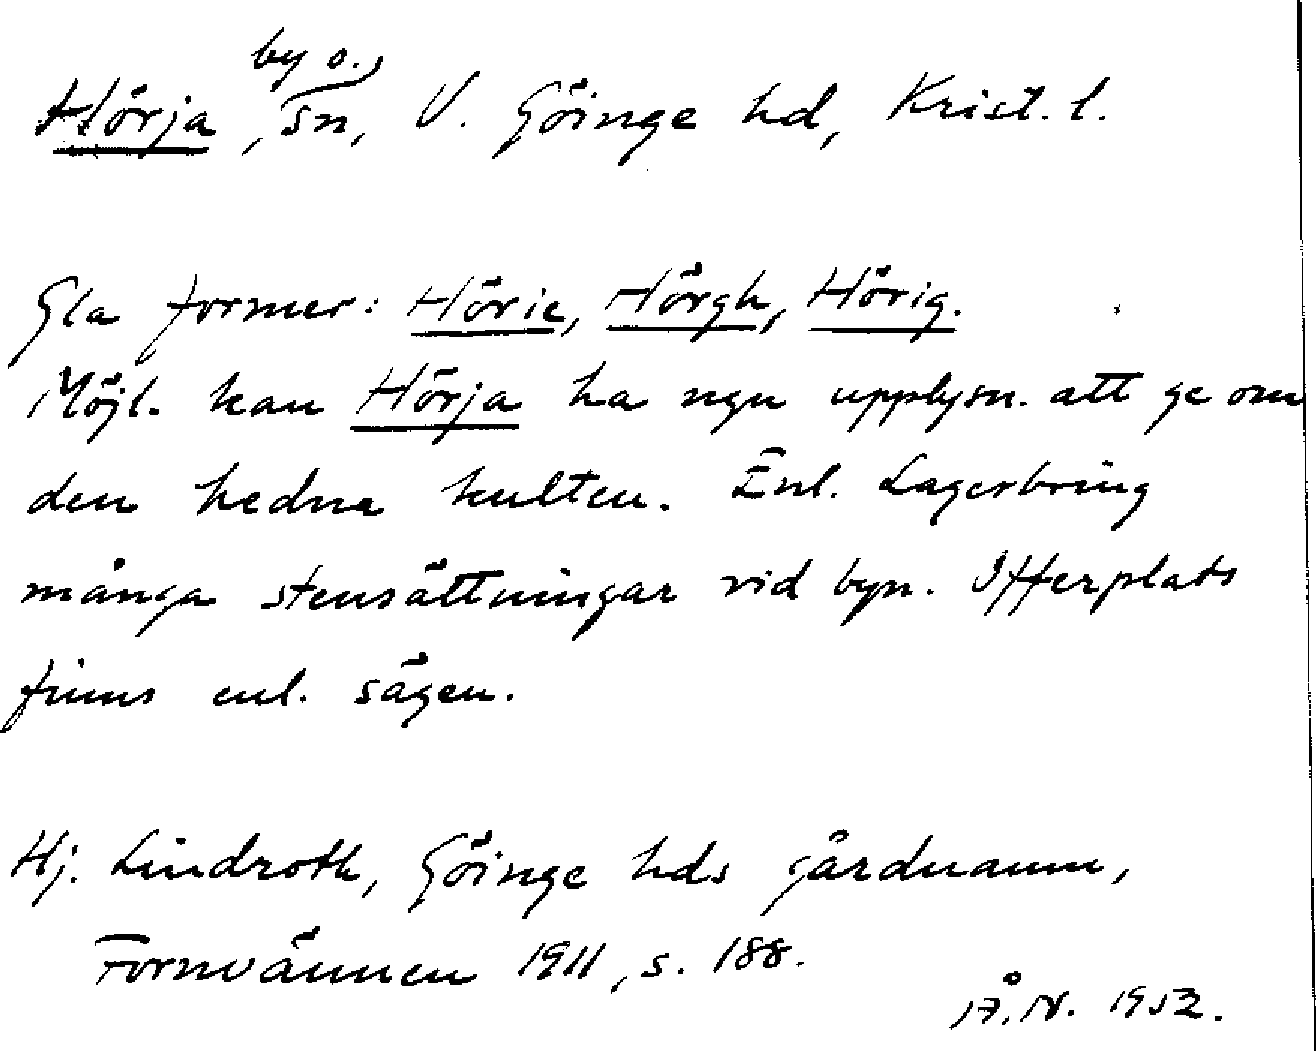 Hörja, by o. sn, V. Göinge hd, Krist. l.
Gla former: Hörie, Hörgh, Hörig.
Möjl. kan Hörja ha ngn upplysn. att ge om
den hedna kulten. Enl. Lagerbring
många stensättningar vid byn. Offerplats
finns enl. sägen.
Hj. Lindroth, Göinge hds gårdnamn,
Fornvännen 1911, s. 188.
Å. N. 1952.